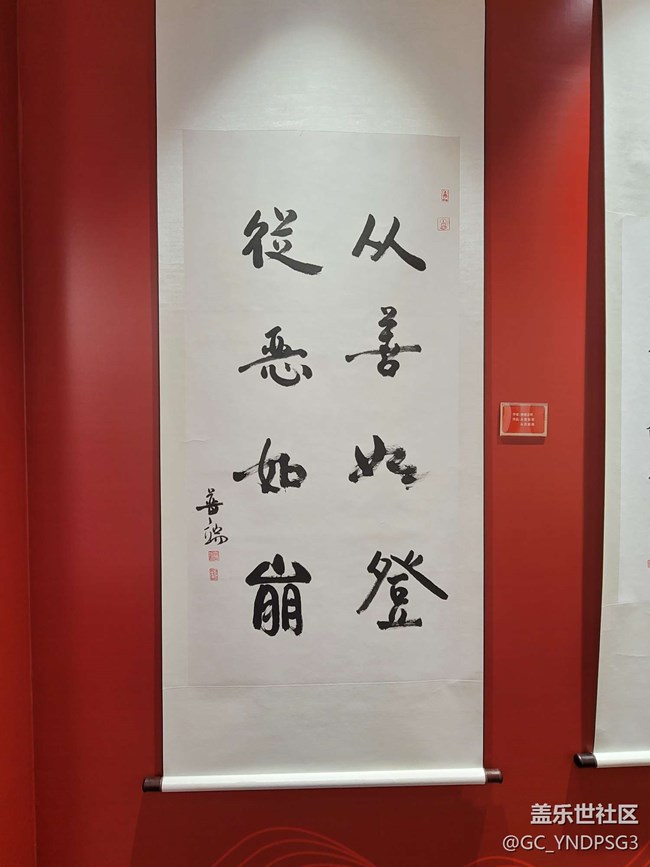 从善如登
從惡如崩
善瑞
盖乐世社区
@GC_YNDPSG3